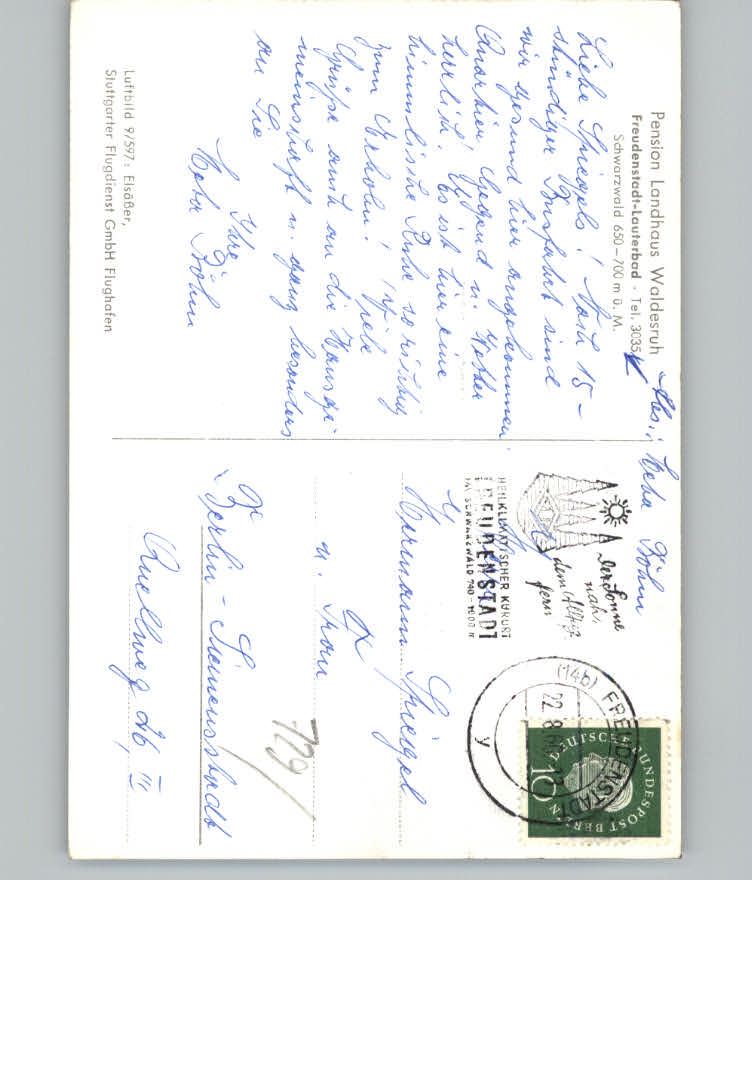 Pension Landhaus Waldesruh
Freudenstadt-Lauterbad - Tel. 3035
Schwarzwald 650-700 m ü. M.
Abs.: Meta Böhm
Liebe Spiegels! Nach 15-
stündiger Busfahrt sind
wir gesund hier angekommen.
Quartier, Gegend u. Wetter
herrlich! Es ist hier eine
himmlische Ruhe so richtig
zum Erholen! Viele
Grüße auch an die Hausge-
meinschaft u. ganz besonders
an Sie
Ihre
Meta Böhm
Luftbild 9/597: Elsäßer,
Stuttgarter Flugdienst GmbH Flughafen
Der Sonne
nah,
dem Alltag
fern
HEILKLIMATISCHER KURORT
FREUDENSTADT
IM SCHWARZWALD 740-1000 m
(14b) FREUDENSTADT
22.8.60
y
DEUTSCHE BUNDESPOST BERLIN
10
Hermann Spiegel
u. Frau
Berlin-Siemensstadt
Quellweg 26 III
729/